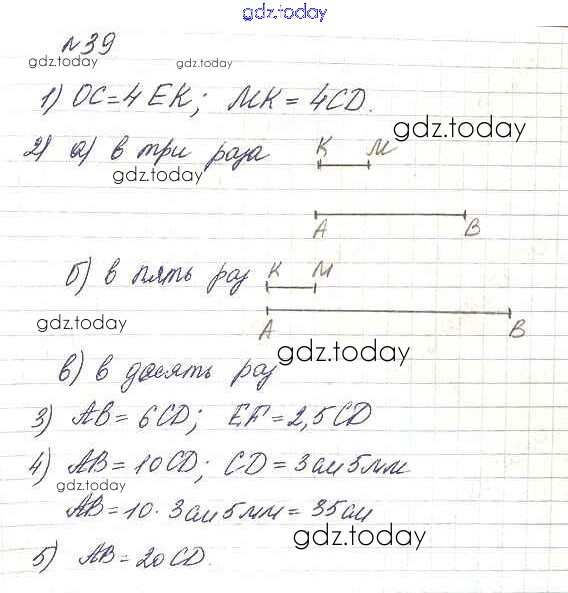 gdz.today
№39
gdz.today gdz.today
1) OC=4 EK; MK = 4CD.
gdz.today
2) а) в три раза K M
gdz.today
A B
б) в пять раз K M
gdz.today A B
gdz.today
в) в десять раз
3) AB = 6CD; EF = 2,5CD
4) AB = 10CD; CD = 3см 5мм
gdz.today
AB = 10 · 3см 5мм = 35см
gdz.today
5) AB = 20CD.